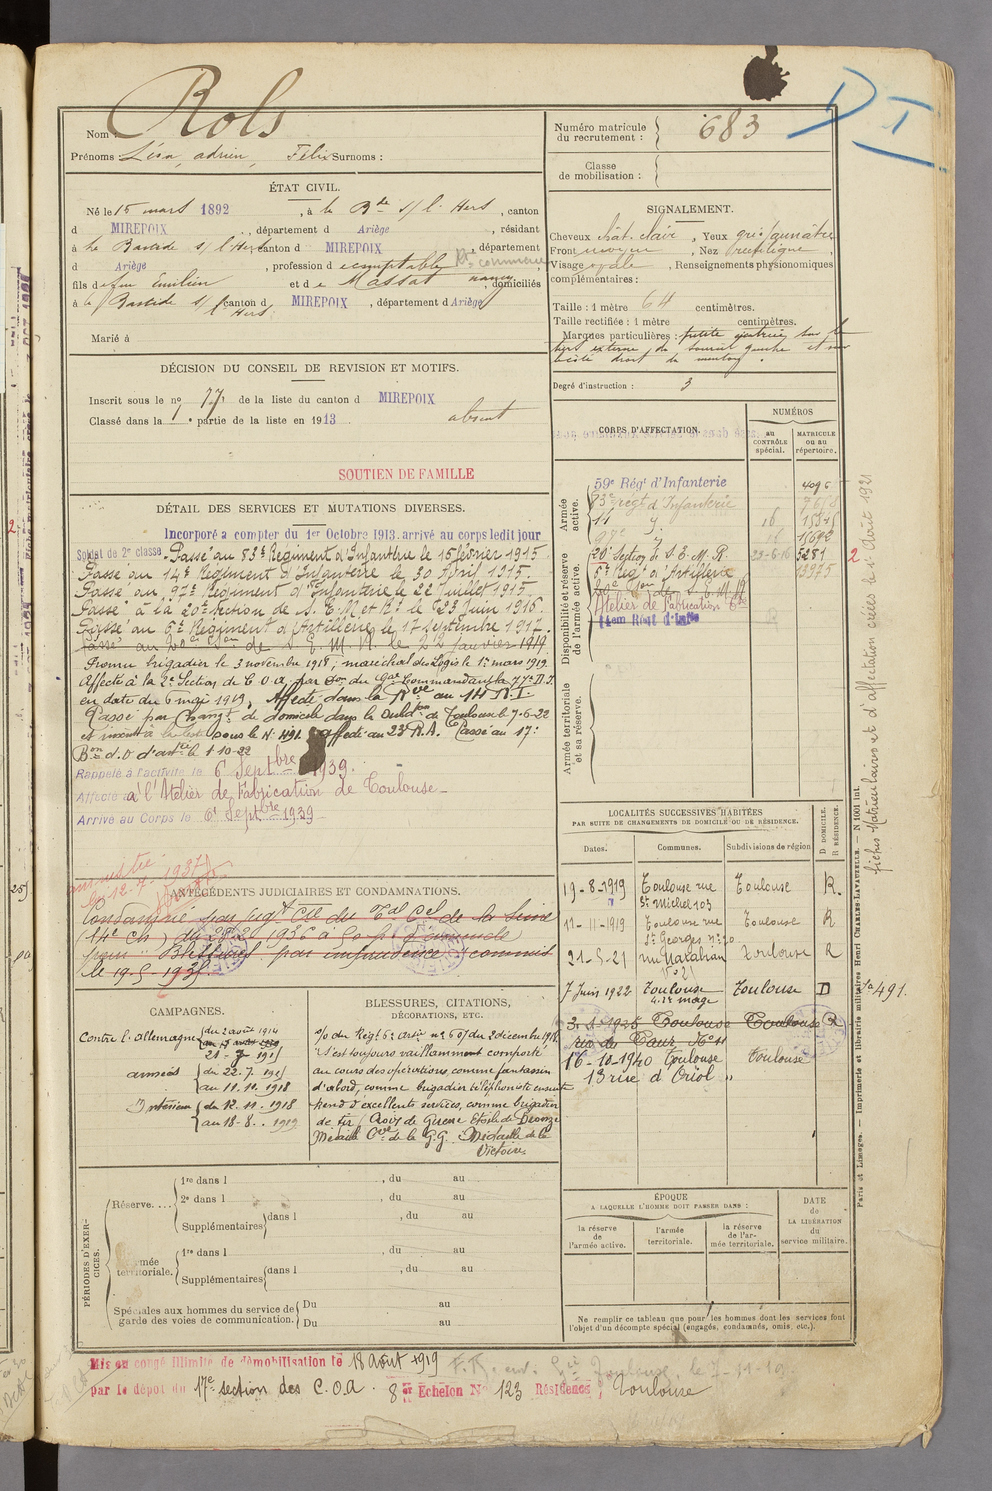 Nom Rols
Prénoms Léon, adrien, Félix Surnoms :
Numéro matricule du recrutement : 683
D I
Classe de mobilisation :
ÉTAT CIVIL.
Né le 15 mars 1892, à la Bde s/ l'Hers, canton
d MIREPOIX, département d Ariège, résidant
à La Bastide s/ l'Hers canton d MIREPOIX, département
d Ariège, profession d comptable
fils de feu Emilien et de Massat nancy, domiciliés
à la Bastide s/ l'Hers canton d MIREPOIX, département d Ariège
Marié à
SIGNALEMENT.
Cheveux chât. clair, Yeux gris jaunâtre
Front moyen, Nez rectiligne
Visage ovale, Renseignements physionomiques
complémentaires :
Taille : 1 mètre 64 centimètres.
Taille rectifiée : 1 mètre centimètres.
Marques particulières : petite cicatrice sur le
tiers externe du sourcil gauche et au
côté droit du menton.
Degré d'instruction : 3
DÉCISION DU CONSEIL DE REVISION ET MOTIFS.
Inscrit sous le no 77 de la liste du canton d MIREPOIX
Classé dans la 1e partie de la liste en 1913. absent
SOUTIEN DE FAMILLE
DÉTAIL DES SERVICES ET MUTATIONS DIVERSES.
Incorporé à compter du 1er Octobre 1913. arrivé au corps ledit jour
Soldat de 2e classe. Passé au 83e Régiment d'Infanterie le 15 février 1915
Passé au 14e Régiment d'Infanterie le 30 Avril 1915.
Passé au 97e Régiment d'Infanterie le 22 Juillet 1915.
Passé à la 20e Section de S. E. M et R. le 23 Juin 1916.
Passé au 6e Régiment d'Artillerie le 17 septembre 1917.
Passé au 20e Son de S. E. M. R. le 22 janvier 1919
Promu brigadier le 3 novembre 1918, maréchal des Logis le 1er mars 1919
Affecté à la 2e Section de C O A, par Don du Gal Commandant la 77e D.I.
en date du 6 mai 1919, Affecté dans la Rve au 14 R. I
Passé par Changt de domicile dans la Subdon de Toulouse le 7-6-22
sous le No 491. affecté au 23e R.A. Passé au 17e
Bon d. O d'artie le 1-10-22
Rappelé à l'activité le 6 Septbre 1939.
Affecté à l'Atelier de Fabrication de Toulouse
Arrivé au Corps le 6 Septbre 1939
CORPS D'AFFECTATION.
NUMÉROS
au CONTRÔLE spécial.
MATRICULE ou au répertoire.
Armée active.
59e Régt d'Infanterie 4096
83e régt d'Infanterie
14 "
97e "
20e Section de S. E. M. R. 23-6-16 5281
6e Régt d'Artillerie 13975
20e Son de S E M R
Atelier de Fabrication
14em Régt d'Inftie
Disponibilité et réserve de l'armée active.
Armée territoriale et sa réserve.
LOCALITÉS SUCCESSIVES HABITÉES
PAR SUITE DE CHANGEMENTS DE DOMICILE OU DE RÉSIDENCE.
Dates. Communes. Subdivisions de région D. DOMICILE. R RÉSIDENCE.
19-8-1919 Toulouse rue St Michel 103 Toulouse R.
11-11-1919 Toulouse rue St Georges no 20 Toulouse R
21-5-21 rue Matabiau No 21 Toulouse R
7 Juin 1922 Toulouse Toulouse D
La 491.
3-1-1925 Toulouse Toulouse R
16-10-1940 Toulouse Toulouse
13 rue d'Oriol "
amnistie
12-7-1937
ANTÉCÉDENTS JUDICIAIRES ET CONDAMNATIONS.
Condamné par jugt Ctel du Tal Cel de la Seine
(14e Ch) du 28-2 1936 à 50 f d'amende
pour "Blessures par imprudence" commis
le 19-5-1935.
CAMPAGNES.
Contre l'Allemagne du 2 août 1914
21-7 1915
armées du 22.7.1915
au 11.11.1918
Intérieur du 12.11.1918
au 18-8.1919
BLESSURES, CITATIONS, DÉCORATIONS, ETC.
o/o du Régt 6e Artie no 60 du 2 décembre 1918.
"S'est toujours vaillamment comporté
au cours des opérations, comme fantassin
d'abord, comme brigadier téléphoniste ensuite
Rend d'excellents services, comme brigadier
de tir" Croix de Guerre Etoile de Bronze
Médaille Cve de la G.G. Médaille de la
Victoire.
PÉRIODES D'EXERCICES.
Réserve....
1re dans l , du au
2e dans l , du au
Supplémentaires dans l , du au
Armée territoriale.
1re dans l , du au
Supplémentaires dans l , du au
Spéciales aux hommes du service de garde des voies de communication.
Du au
Du au
ÉPOQUE
A LAQUELLE L'HOMME DOIT PASSER DANS :
la réserve de l'armée active.
l'armée territoriale.
la réserve de l'armée territoriale.
DATE de LA LIBÉRATION du service militaire.
Ne remplir ce tableau que pour les hommes dont les services font
l'objet d'un décompte spécial (engagés, condamnés, omis, etc.).
Mis en congé illimité de démobilisation le 18 août 1919
par le dépôt du 17e section des C.O.A. 8e Echelon No 123 Résidence Toulouse
Paris et Limoges. — Imprimerie et librairie militaires Henri CHARLES-LAVAUZELLE. — N 1001 int.
fiches Matriculaires et d'affectation créées le 1 Août 1921